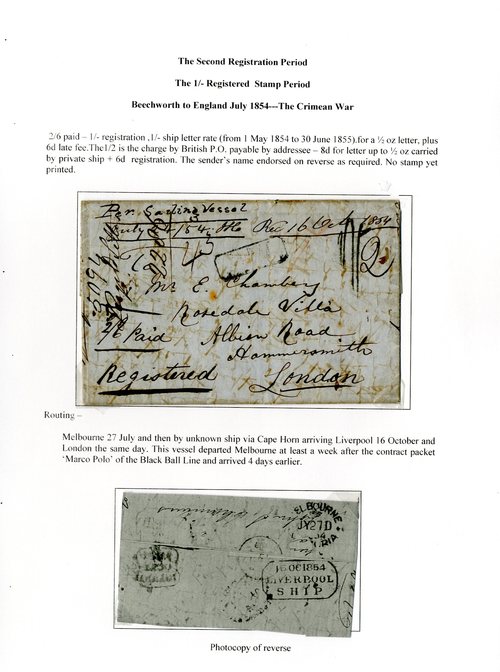 The Second Registration Period
The 1/- Registered Stamp Period
Beechworth to England July 1854---The Crimean War
2/6 paid – 1/- registration ,1/- ship letter rate (from 1 May 1854 to 30 June 1855).for a ½ oz letter, plus
6d late fee.The1/2 is the charge by British P.O. payable by addressee – 8d for letter up to ½ oz carried
by private ship + 6d registration. The sender's name endorsed on reverse as required. No stamp yet
printed.
Per Sailing Vessel
July 54 Rec 16 Oct 1854
Mr E. Chambers
Rosedale Villa
Albion Road
Hammersmith
London
2/6 Paid
Registered
Routing –
Melbourne 27 July and then by unknown ship via Cape Horn arriving Liverpool 16 October and
London the same day. This vessel departed Melbourne at least a week after the contract packet
'Marco Polo' of the Black Ball Line and arrived 4 days earlier.
ELBOURNE
JY27D
RIA
16OC1854
LIVERPOOL
SHIP
Photocopy of reverse